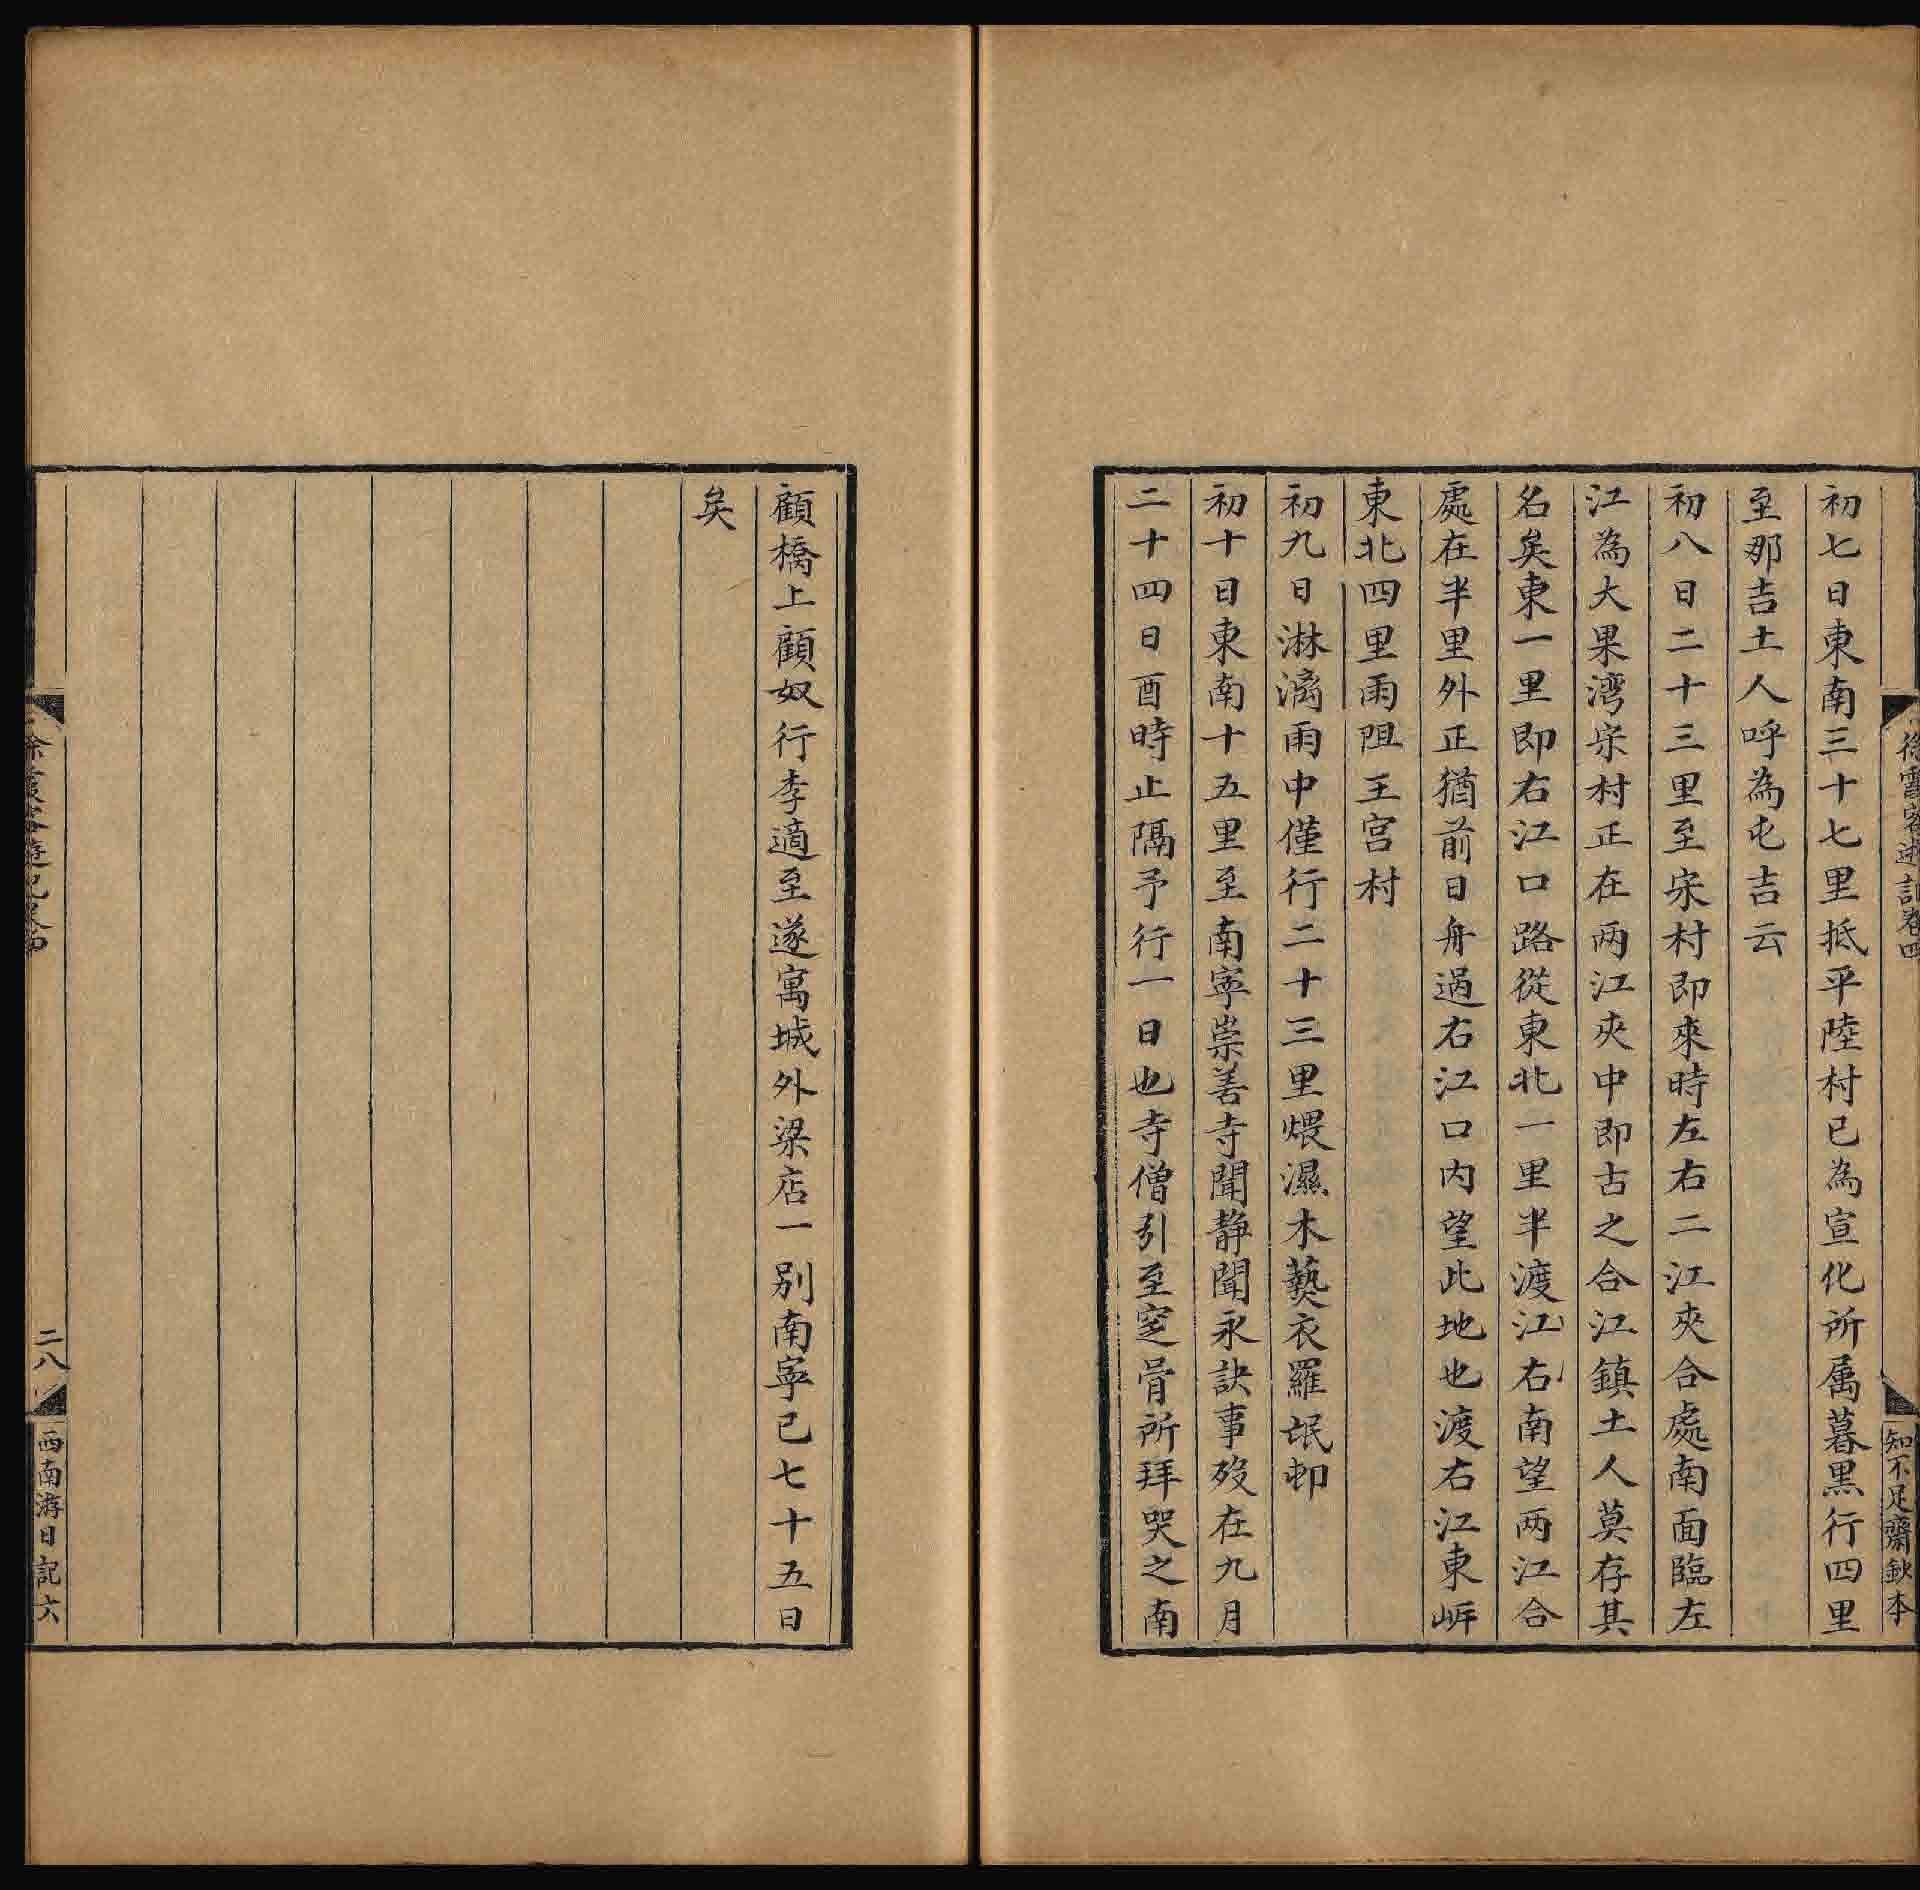 徐霞客遊記卷四
知不足齋鈔本
初七日東南三十七里抵平陸村已為宣化所属暮黑行四里
至那吉土人呼為屯吉云
初八日二十三里至宋村即來時左右二江夾合處南面臨左
江為大果灣宋村正在两江夾中即古之合江鎮土人莫存其
名矣東一里即右江口路從東北一里半渡江右南望两江合
處在半里外正猶前日舟過右江口内望此地也渡右江東岍
東北四里雨阻王宫村
初九日淋漓雨中僅行二十三里煨濕木爇衣羅岷邨
初十日東南十五里至南寧崇善寺聞静聞永訣事殁在九月
二十四日酉時止隔予行一日也寺僧引至窆骨所拜哭之南
顧橋上顧奴行李適至遂寓城外梁店一别南寧已七十五日
矣
徐霞客遊記卷四
二八
西南游日記六